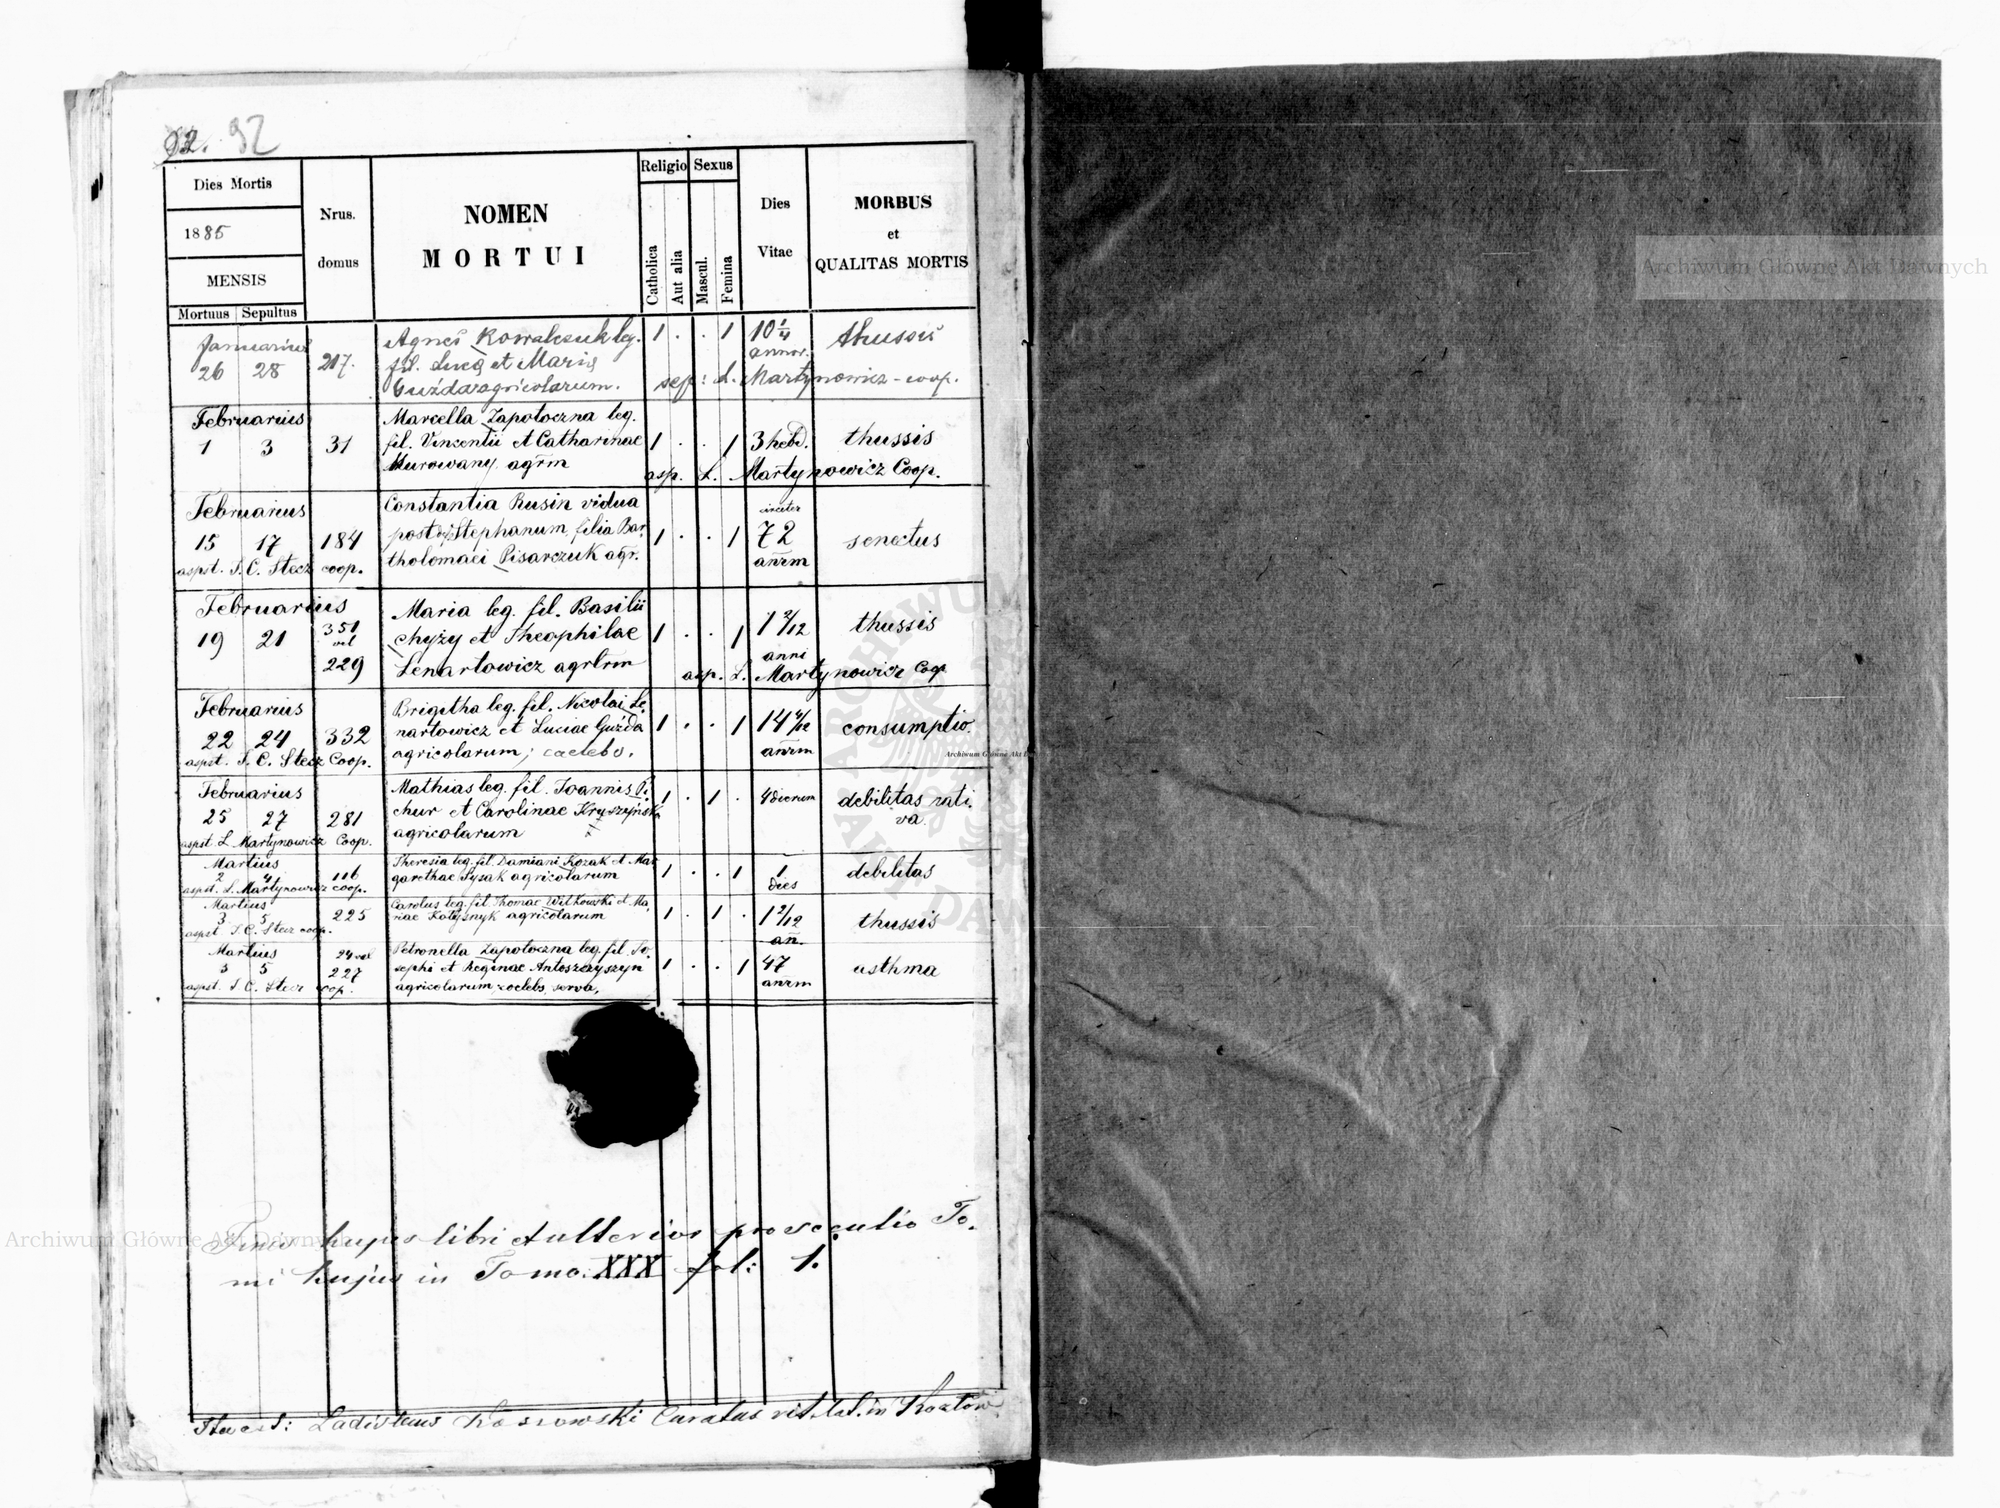 92. 92
Dies Mortis
1885
MENSIS
Mortuus Sepultus
Nrus.
domus
NOMEN
MORTUI
Religio
Catholica
Aut alia
Sexus
Mascul.
Femina
Dies
Vitae
MORBUS
et
QUALITAS MORTIS
Januarius
26 28 217.
Agnes Kowalczuk leg.
fil. Lucę et Marię
Guźda agricolarum.
1 . . 1 10 1/4
annor.
thussis
sep: L. Martynowicz - coop.
Februarius
1 3 31
Marcella Zapotoczna leg.
fil. Vincentii et Catharinae
Murowany agrm
1 . . 1 3 hebd. thussis
asp. L. Martynowicz Coop.
Februarius
15 17 184
aspst. J. C. Stecz coop.
Constantia Rusin vidua
post Stephanum, filia Bar-
tholomaei Pisarczuk agr.
1 . . 1
circiter
72
anrm
senectus
Februarius
19 21 351
vel
229
Maria leg. fil. Basilii
Chyży et Theophilae
Lenartowicz agrlrm
1 . . 1 1 2/12
anni
thussis
asp. L. Martynowicz Coop
Februarius
22 24 332
aspst. J. C. Stecz Coop.
Brigitha leg. fil. Nicolai Le-
nartowicz et Luciae Guźda
agricolarum; caelebs.
1 . . 1 14 4/12
anrm
consumptio.
Februarius
25 27 281
aspst L Martynowicz Coop.
Mathias leg. fil. Joannis Pi-
chur et Carolinae Kryszyńsk
agricolarum
1 . 1 . 4 dierum
debilitas nati-
va.
Martius
2 4 116
aspst. L. Martynowicz coop.
Theresia leg. fil. Damiani Kozak et Mar-
garethae Sysak agricolarum
1 . . 1 1
dies
debilitas
Martius
3 5 225
aspst J. C. Stecz coop.
Carolus leg. fil Thomae Witkowski et Ma-
riae agricolarum
1 . 1 . 1 2/12
an.
thussis
Martius
3 5 24 vel
227
aspst. J. C. Stecz cop.
Petronella Zapotoczna leg. fil. Jo-
sephi et Reginae Antoszczyszyn
agricolarum, caelebs, serva.
1 . . 1 47
anrm
asthma
Finis hujus libri et ulterior prosecutio To-
mi hujus in Tomo: XXX fol: 1.
Ladislaus Kossowski Curatus rit. lat. in Kozłów
Archiwum Główne Akt Dawnych
Archiwum Główne Akt Dawnych